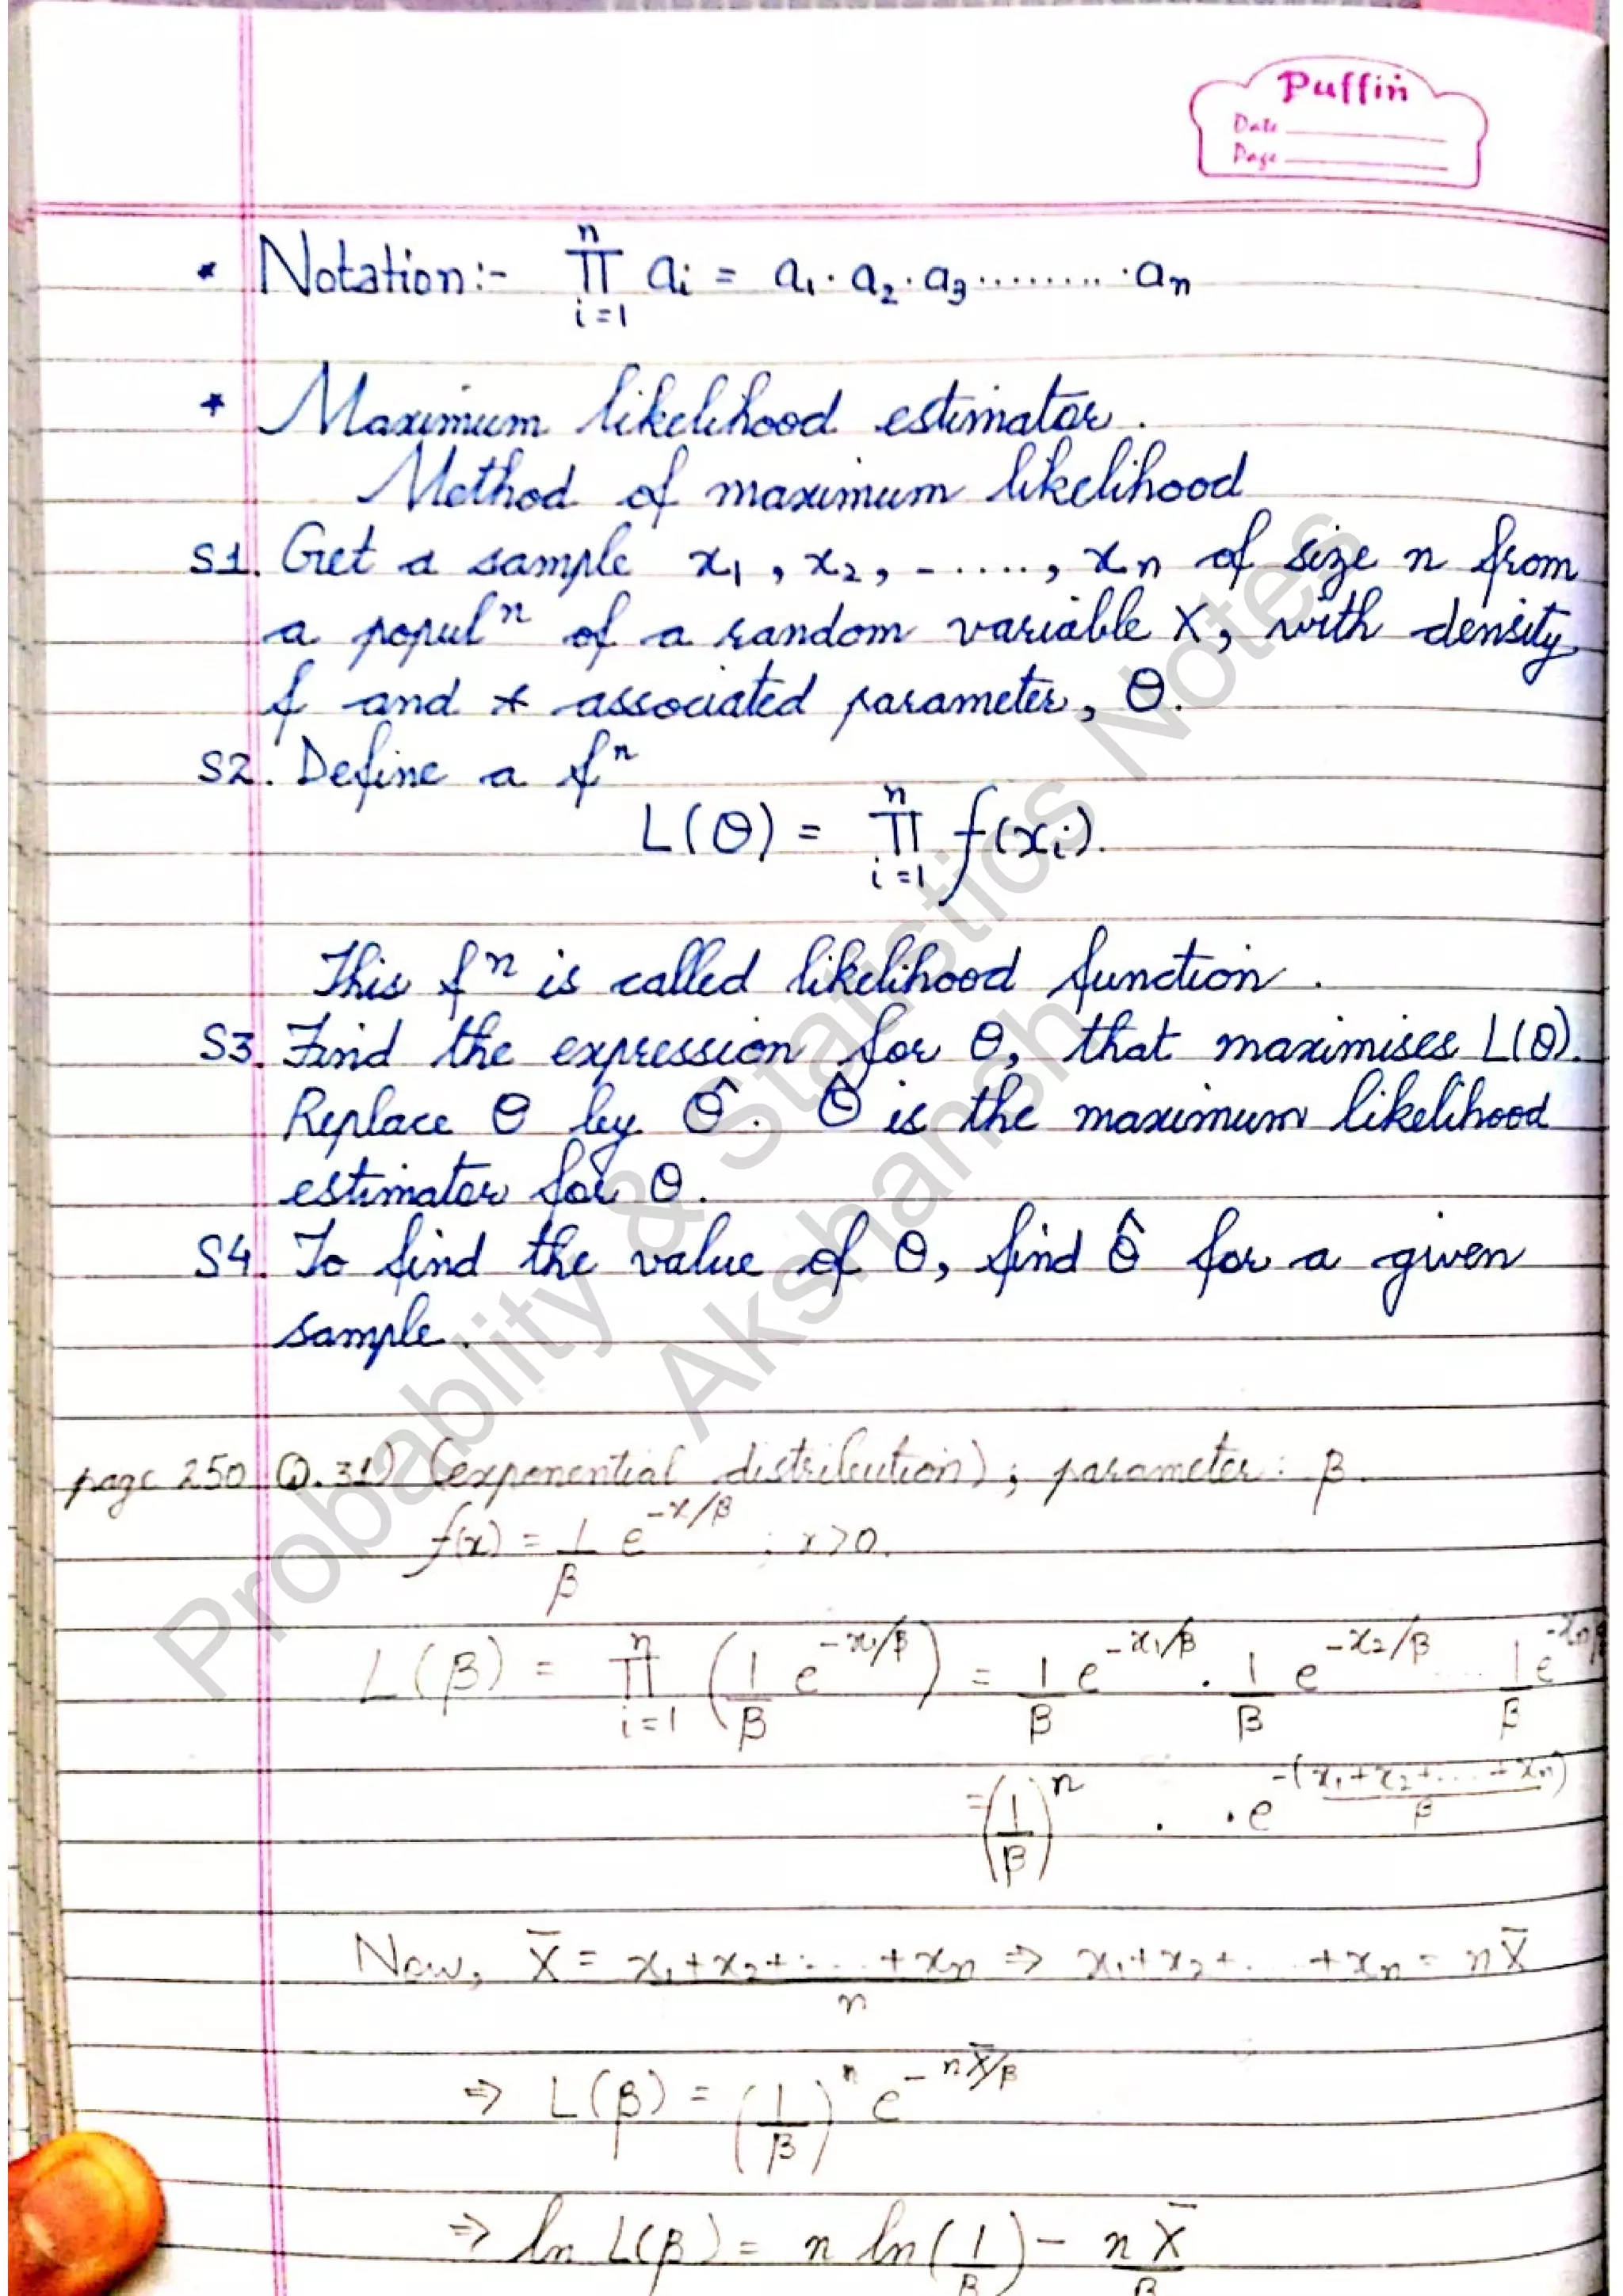 Puffin
Date
Page
* Notation:- n∏i=1 ai = a1 · a2 · a3 ......... · an
* Maximum likelihood estimator.
Method of maximum likelihood
S1. Get a sample x1, x2, - ....., xn of size n from
a populⁿ of a random variable X, with density
f and associated parameter, θ.
S2. Define a fⁿ
L(θ) = n∏i=1 f(xi).
This fⁿ is called likelihood function.
S3. Find the expression for θ, that maximises L(θ).
Replace θ by θ̂. θ̂ is the maximum likelihood
estimator for θ.
S4. To find the value of θ, find θ̂ for a given
sample.
page 250 Q.31) (exponential distribution); parameter: β.
f(x) = 1/β e^(-x/β) ; x>0.
L(β) = n∏i=1 (1/β e^(-xi/β)) = 1/β e^(-x1/β) · 1/β e^(-x2/β) ... 1/β e^(-xn/β)
= (1/β)ⁿ . · e^(-(x1+x2+....+xn)/β)
Now, X̄ = (x1+x2+....+xn)/n ⇒ x1+x2+...+xn = nX̄
⇒ L(β) = (1/β)ⁿ e^(-nX̄/β)
⇒ ln L(β) = n ln(1/β) - nX̄/β
Probablity & Statistics Notes
Akshansh